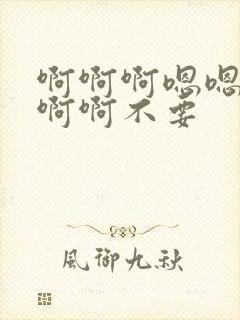 啊啊啊嗯嗯
啊啊不要
風御九秋